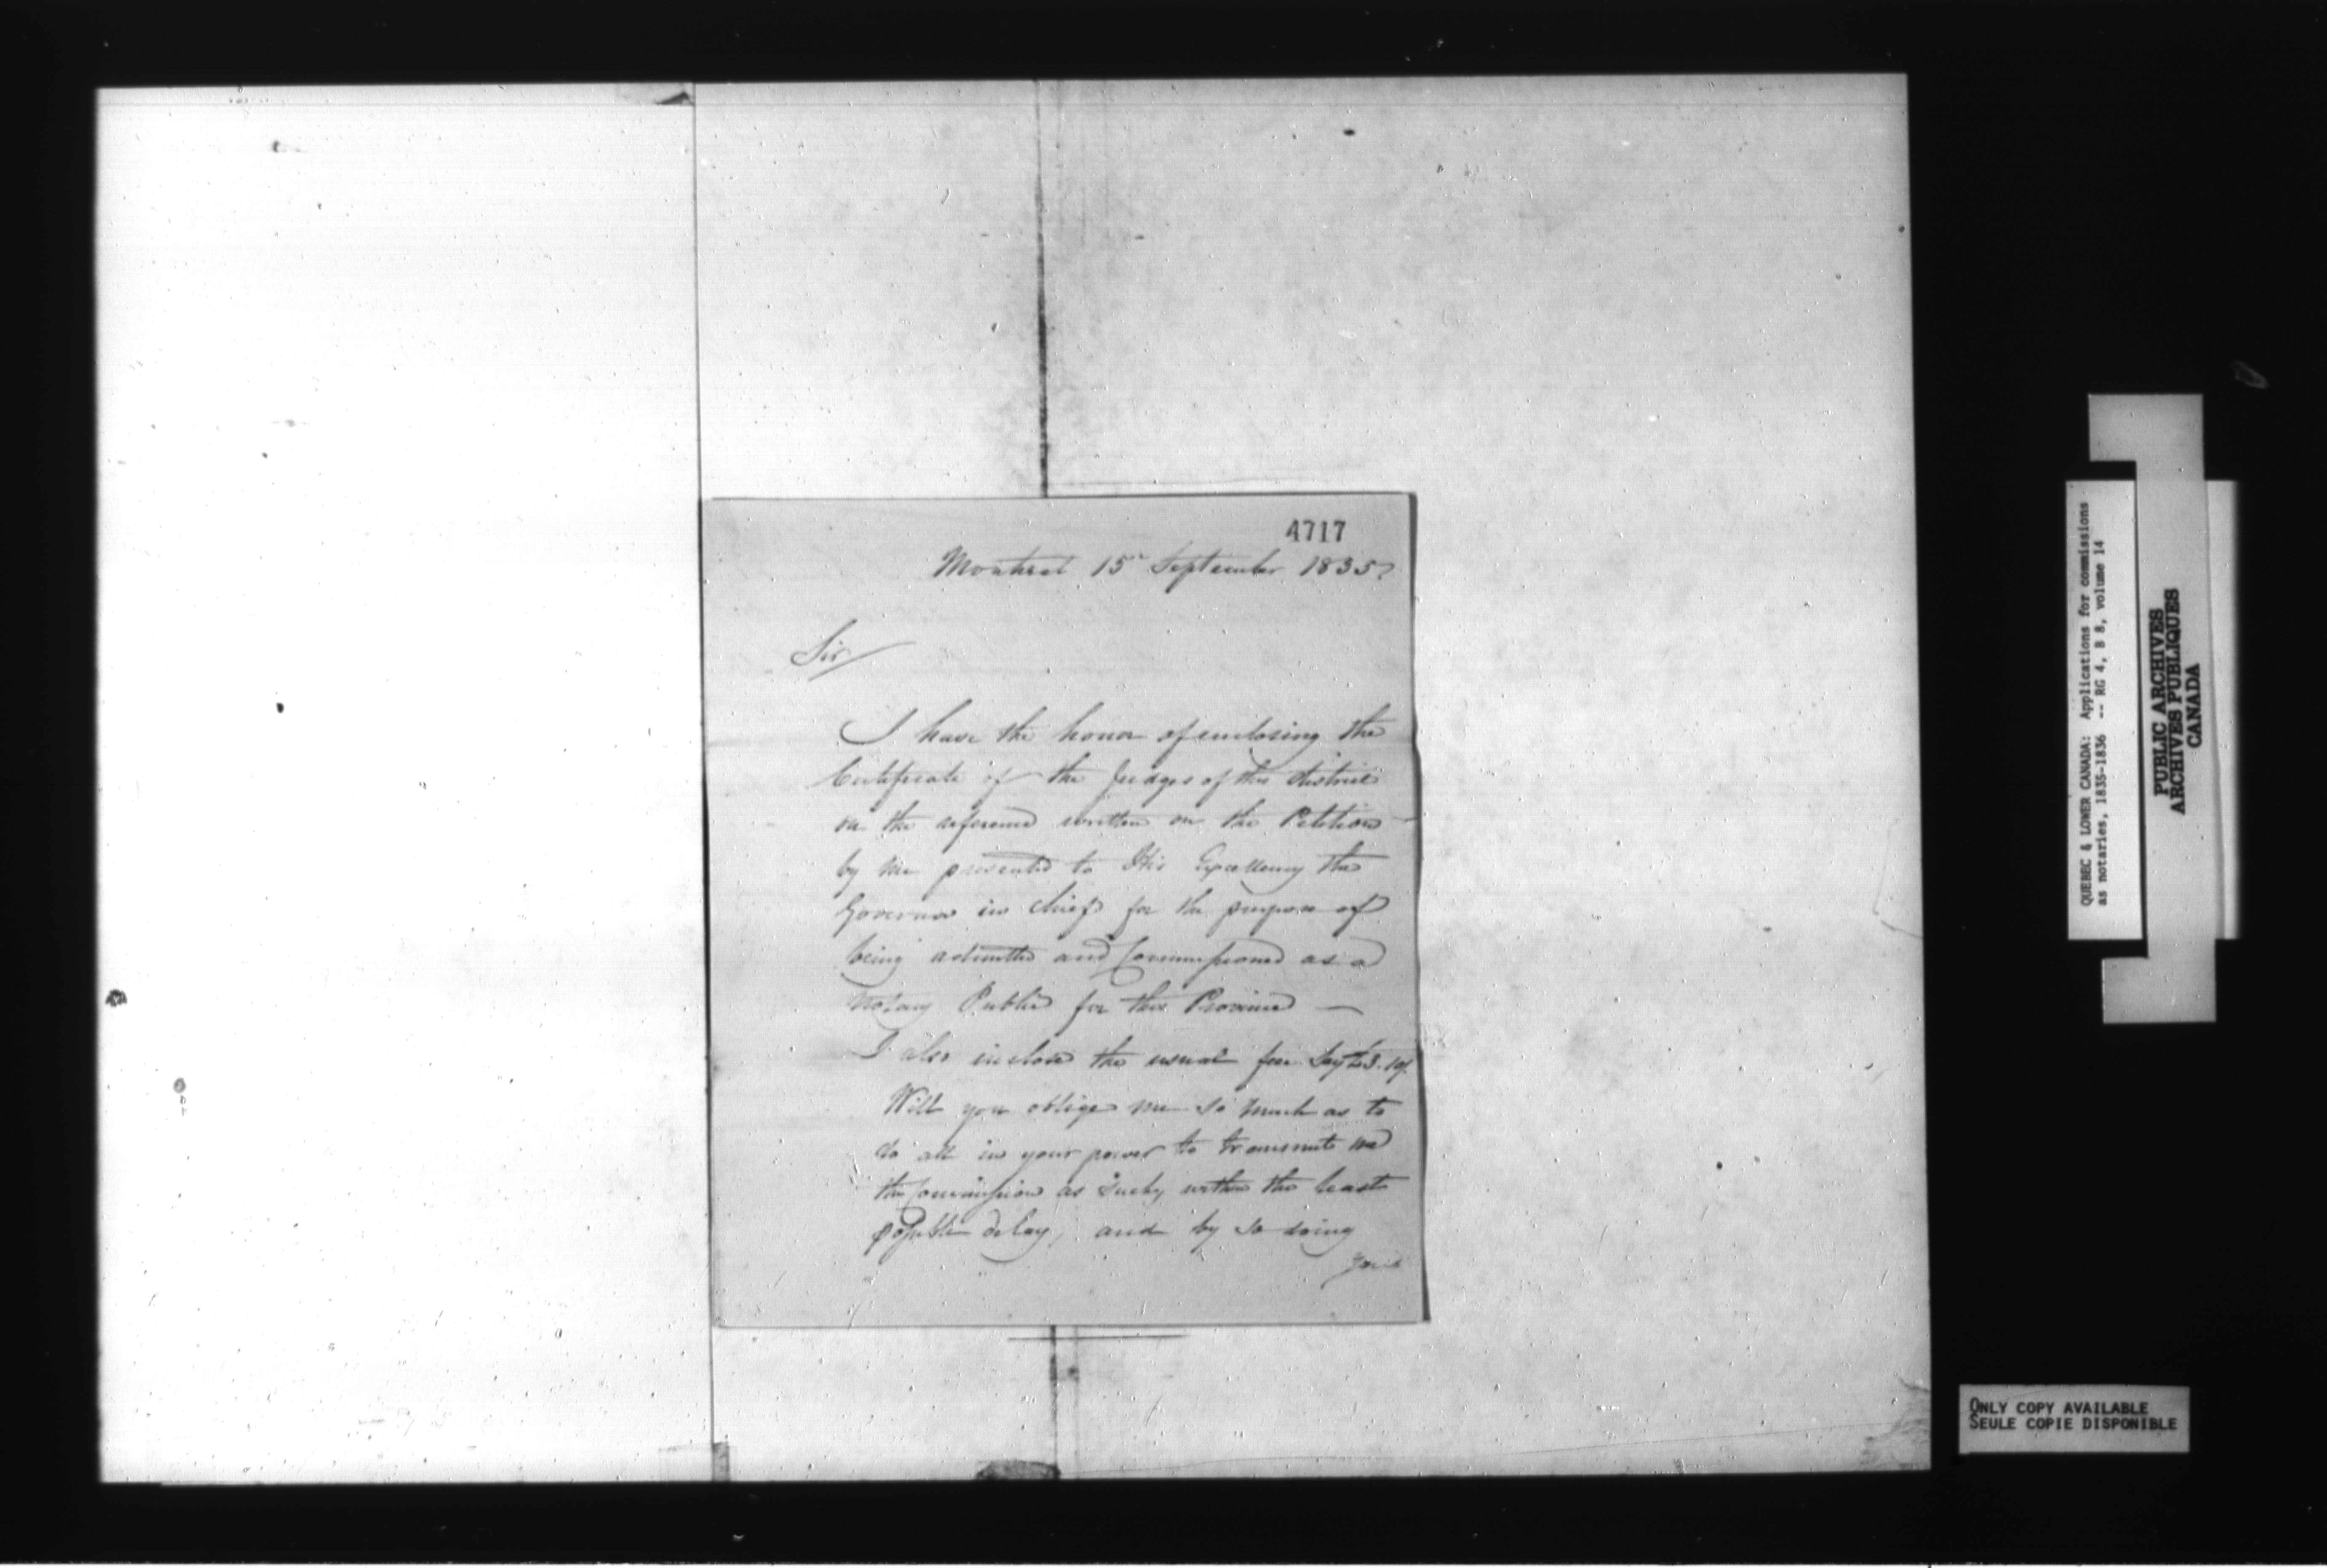 4717
Montreal 15 September 1835
Sir
I have the honor of enclosing the
Certificate of the Judges of this district
on the reference written on the Petition
by me presented to His Excellency the
Governor in chief for the purpose of
being admitted and Commissioned as a
Notary Public for this Province —
I also inclose the usual fee Say £3.10/.
Will you oblige me so much as to
do all in your power to transmit me
the Commission as such, within the least
possible delay, and by so doing
QUEBEC & LOWER CANADA: Applications for commissions
as notaries, 1835-1836 -- RG 4, B 8, volume 14
PUBLIC ARCHIVES
ARCHIVES PUBLIQUES
CANADA
ONLY COPY AVAILABLE
SEULE COPIE DISPONIBLE